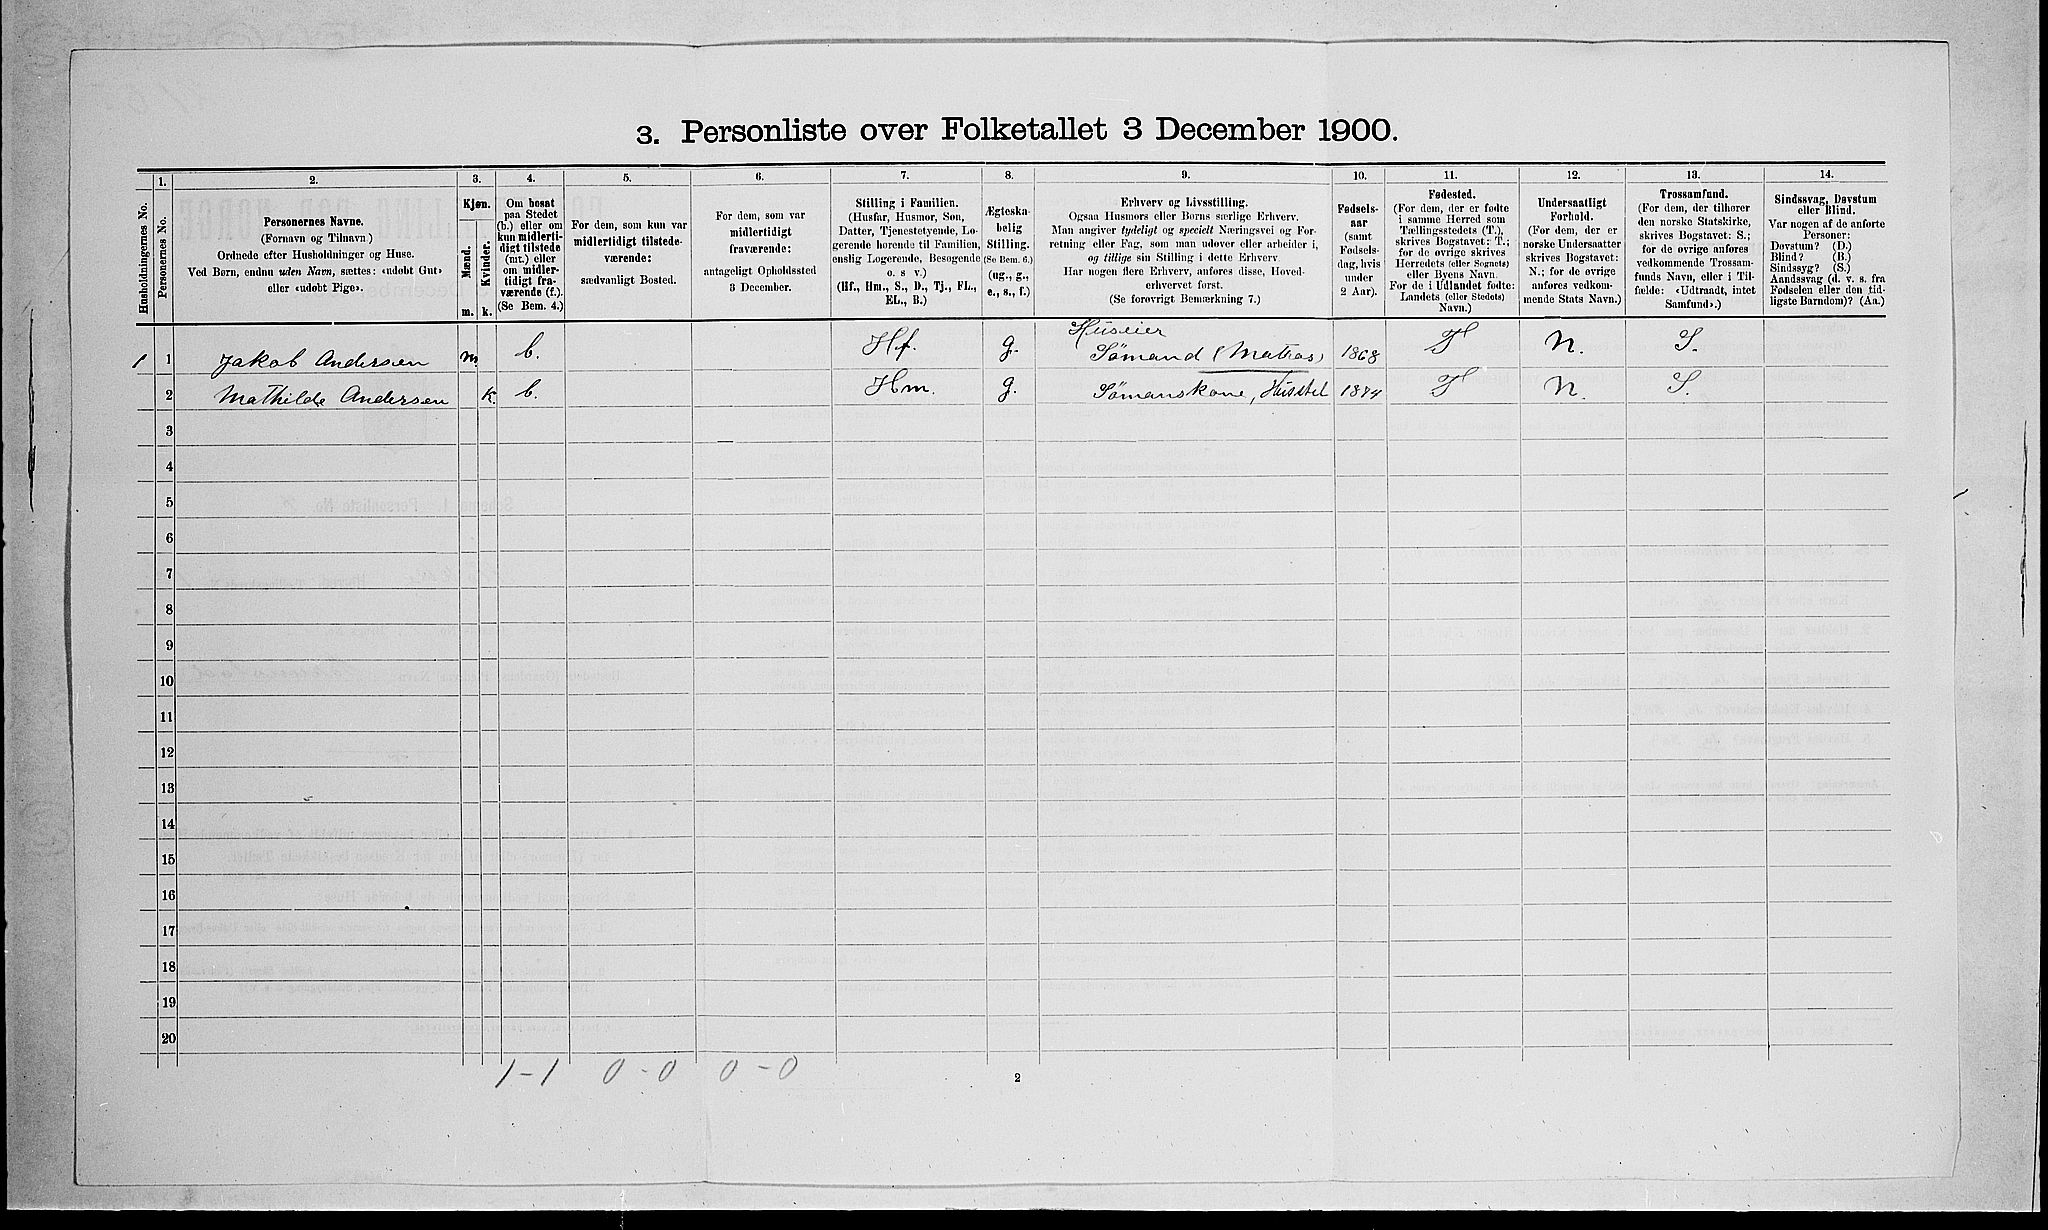 3. Personliste over Folketallet 3 December 1900.
Husholdningernes No.
1.
Personernes No.
2.
Personernes Navne.
(Fornavn og Tilnavn.)
Ordnede efter Husholdninger og Huse.
Ved Børn, endnu uden Navn, sættes: «udøbt Gut»
eller «udøbt Pige».
3.
Kjøn.
Mænd.
Kvinder.
m.
k.
4.
Om bosat
paa Stedet
(b.) eller om
kun midlerti-
digt tilstede
(mt.) eller
om midler-
tidigt fra-
værende (f.).
(Se Bem. 4.)
5.
For dem, som kun var
midlertidigt tilstede-
værende:
sædvanligt Bosted.
6.
For dem, som var
midlertidigt
fraværende:
antageligt Opholdssted
3 December.
7.
Stilling i Familien.
(Husfar, Husmor, Søn,
Datter, Tjenestetyende, Lo-
gerende hørende til Familien,
enslig Logerende, Besøgende
o. s v.)
(Hf., Hm., S., D., Tj., FL.,
EL., B.)
8.
Ægteska-
belig
Stilling.
(Se Bem. 6.)
(ug., g.,
e., s., f.)
9.
Erhverv og Livsstilling.
Ogsaa Husmors eller Børns særlige Erhverv.
Man angiver tydeligt og specielt Næringsvei og For-
retning eller Fag, som man udøver eller arbeider i,
og tillige sin Stilling i dette Erhverv.
Har nogen flere Erhverv, anføres disse, Hoved-
erhvervet først.
(Se forøvrigt Bemærkning 7.)
10.
Fødsels-
aar
(samt
Fødsels-
dag, hvis
under
2 Aar).
11.
Fødested.
(For dem, der er fødte
i samme Herred som
Tællingsstedets (T.),
skrives Bogstavet: T.;
for de øvrige skrives
Herredets (eller Sognets)
eller Byens Navn.
For de i Udlandet fødte:
Landets (eller Stedets)
Navn.)
12.
Undersaatligt
Forhold.
(For dem, der er
norske Undersaatter
skrives Bogstavet:
N.; for de øvrige
anføres vedkom-
mende Stats Navn.)
13.
Trossamfund.
(For dem, der tilhører
den norske Statskirke,
skrives Bogstavet: S.;
for de øvrige anføres
vedkommende Trossam-
funds Navn, eller i Til-
fælde: «Udtraadt, intet
Samfund».)
14.
Sindssvag, Døvstum
eller Blind.
Var nogen af de anførte
Personer:
Døvstum? (D.)
Blind? (B.)
Sindssyg? (S.)
Aandssvag (d. v. s. fra
Fødselen eller den tid-
ligste Barndom)? (Aa.)
Huseier
1 1 Jakob Andersen m b. Hf. g. Sømand (Matros) 1868 T N. S.
2 Mathilde Andersen k. b. Hm. g. Sømanskone, Husstel 1874 T N. S.
3
4
5
6
7
8
9
10
11
12
13
14
15
16
17
18
19
20
1-1 0-0 0-0
2